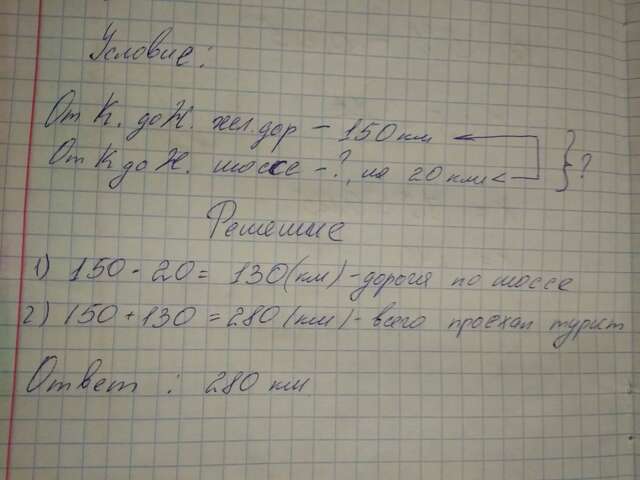 Условие:
От К. до Н. жел.дор – 150 км
От К до Н. шоссе - ?, на 20 км < } ?
Решение
1) 150 - 20 = 130 (км) - дорога по шоссе
2) 150 + 130 = 280 (км) - всего проехал турист
Ответ : 280 км